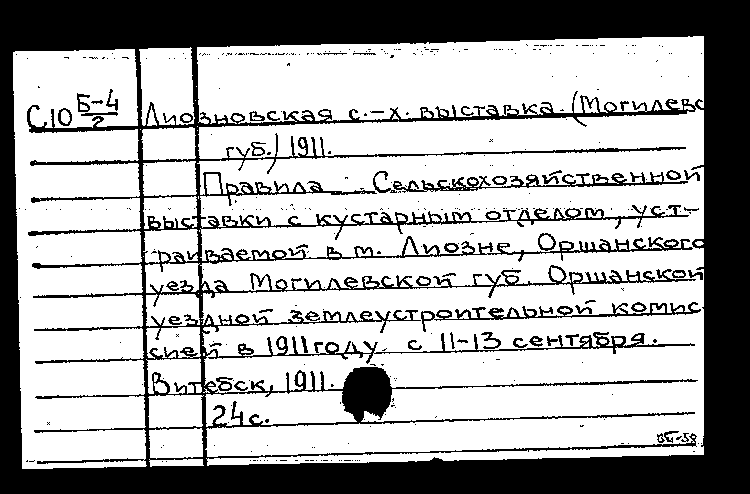 С10 Б-4/2 Лиозновская с.-х. выставка. (Могилевс
губ.) 1911.
Правила Сельскохозяйственной
выставки с кустарным отделом, уст-
раиваемой в м. Лиозне, Оршанского
уезда Могилевской губ. Оршанской
уездной землеустроительной комис
сией в 1911 году с 11-13 сентября.
Витебск, 1911.
24 с.